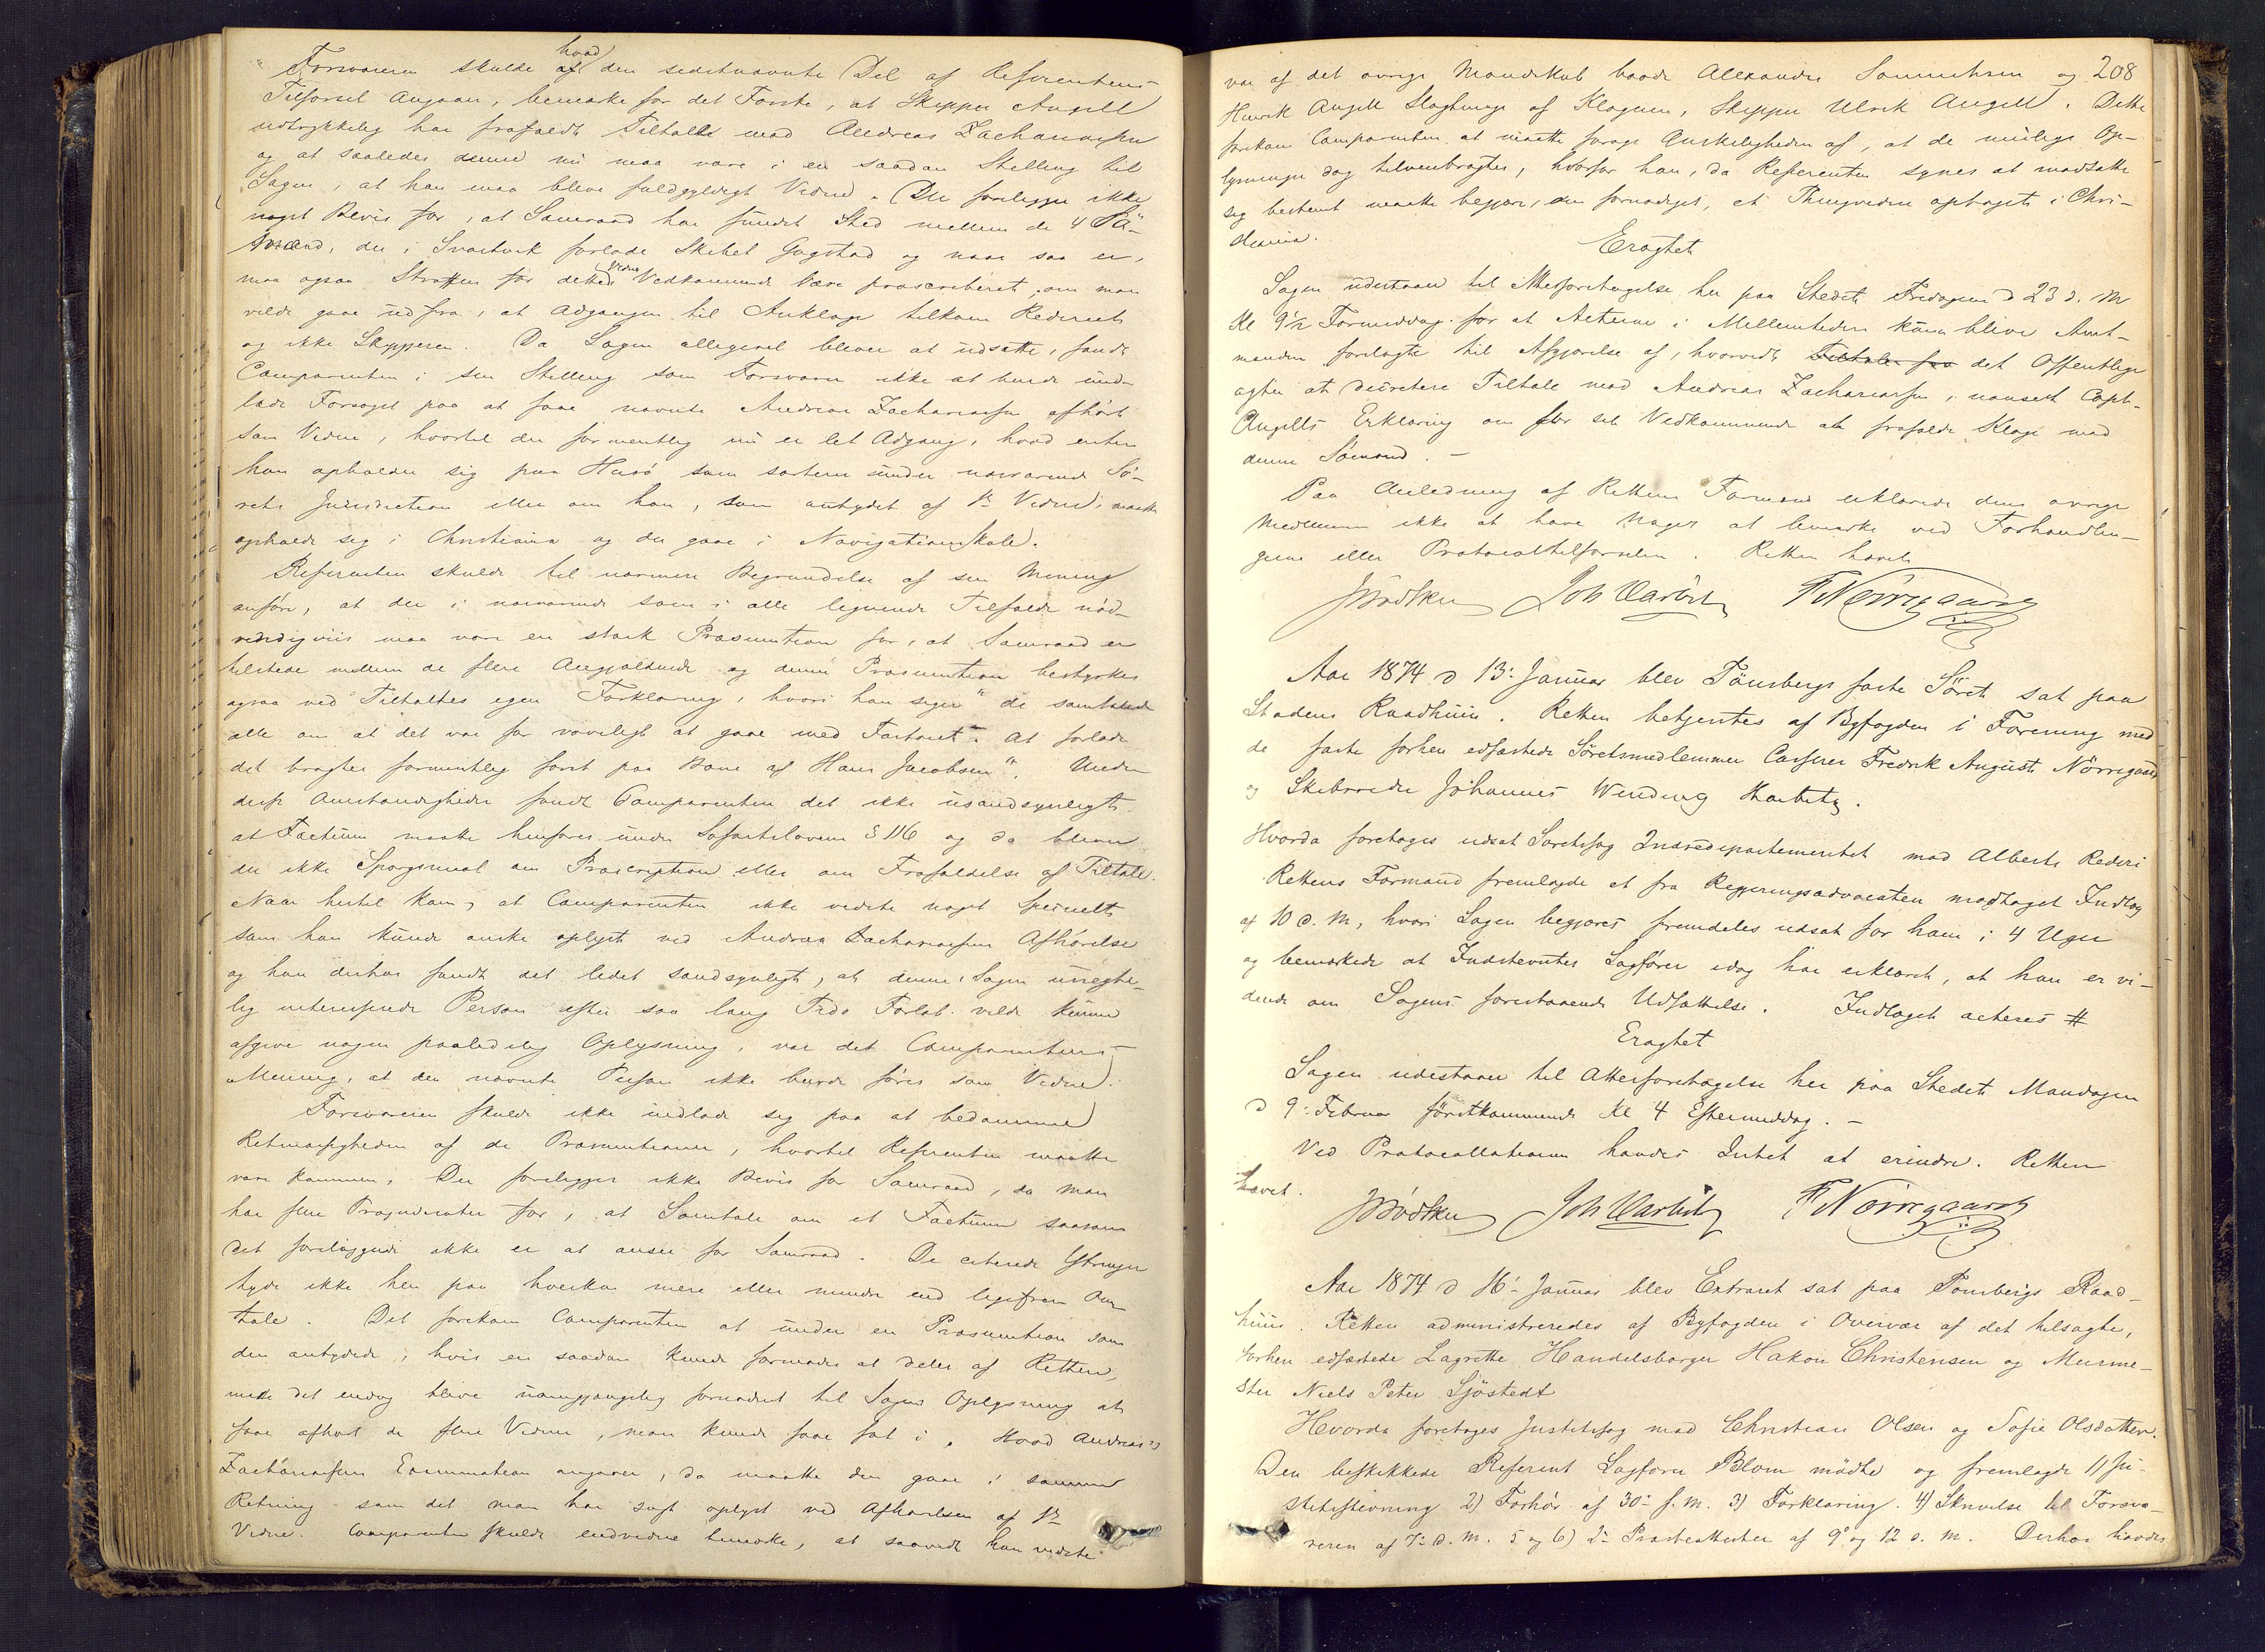 Forsvareren skulde hvad den sidstnævnte Del af Referentens
Tilførsel angaar, bemærke for det Første, at Skipper Angell
udtrykkelig har frafaldt Tiltalte mod Andreas Zachariassen
og at saaledes denne nu maa være i en saadan Stilling til
Sagen, at han maa blive fuldgyldigt Vidne. Der foreligger ikke
noget Bevis for, at Samraad har fundet Sted mellem de 4 Sö-
mænd, der i Svartvik forlode Skibet Gogstad og naar saa er,
maa ogsaa Straffen for dette Vidnes Vedkommende være proscriberet, om man
vilde gaae ud fra, at Adgangen til Anklage tilkom Rederiet
og ikke Skipperen. Da Sagen alligevel bliver at udsætte, fandt
Comparenten i sin Stilling som Forsvarer ikke at burde und-
lade Forsøget paa at faae nævnte Andreas Zachariassen afhört
som Vidne, hvortil der formentlig nu er let Adgang, hvad enten
han opholder sig paa Husö som sorterer under nærværende Sö-
rets Jurisdiction eller om han, som antydet af 1ste Vidne, maatte
opholde sig i Christiania og der gaae i Navigationsskole.
Referenten skulde til nærmere Begrundelse af sin Mening
anföre, at der i nærværende som i alle lignende Tilfælde nöd-
vendigviis maa være en stærk Præsumtion for, at Samraad er
tilstede mellem de flere Angjældende og denne Præsumtion bestyrkes
ogsaa ved Tiltaltes egen Forklaring, hvori han siger "de samtalede
alle om at det var for voveligt at gaae med Fartøiet". At forlade
det bragtes formentlig først paa Bane af Hans Jacobsen". Under
disse Omstændigheder fandt Comparenten det ikke usandsynligt
at Factum maatte henføres under Søfartslovens § 116 og da bliver
der ikke Spørgsmaal om Præscription eller om Frafaldelse af Tiltale.
Naar hertil kom, at Comparenten ikke vidste noget specielt
som han kunde ønske oplyst ved Andreas Zachariassens Afhörelse
og han derhos fandt det lidet sandsynligt, at denne i Sagen unegte-
lig interesserede Person efter saa lang Tids Forløb vilde kunne
afgive nogen paalidelig Oplysning, var det Comparentens
Mening, at den nævnte Person ikke burde føres som Vidne.
Forsvareren skulde ikke indlade sig paa at bedømme
Retmæssigheden af de Præsumtioner, hvortil Referenten maatte
være kommen. Der foreligger ikke Bevis for Samraad, da man
har flere Præjudicater for, at Samtale om et Factum saasom
det foreliggende ikke er at ansee for Samraad. De citerede Ytringer
tyde ikke hen paa hverken mere eller mindre end ligefrem Om-
tale. Det forekom Comparenten at under en Præsumtion som
den antydede, hvis en saadan kunde formodes at deles af Retten,
maa det endog blive uomgjængelig fornødent til Sagens Oplysning at
faae afhørt de flere Vidner, man kunde faae fat i. Hvad Andreas
Zachariassens Examination angaaer, da maatte den gaae i samme
Retning som det man har søgt oplyst ved Afhørelsen af 1ste
Vidne. Comparenten skulde endvidere bemærke, at saavidt han vidste
208
var af det øvrige Mandskab baade Alexander Samuelsen og
Henrik Angell Slægtninge af Klageren, Skipper Ulrik Angell. Dette
forekom Comparenten at maatte forøge Ønskeligheden af, at de mulige Op-
lysninger dog tilveiebragtes, hvorfor han, da Referenten synes at modsætte
sig bestemt maatte begjære, om fornødiget, et Thingsvidne optaget i Chri-
stiania.
Eragtet
Sagen udestaaer til Atterforetagelse her paa Stedet Fredagen d 23 d. M
Kl 9½ Formiddag for at Acterne i Mellemtiden kan blive Amt-
manden forelagte til Afgjørelse af, hvorvidt det Offentlige
agter at decretere Tiltale mod Andreas Zachariassen, uanseet Capt.
Angells Erklæring om for sit Vedkommende at frafalde Klage mod
denne Sömand. —
Paa Anledning af Rettens Formand erklærede dens øvrige
Medlemmer ikke at have Noget at bemærke ved Forhandlin-
gerne eller Protocoltilførselen. Retten hævet
JBödtker Joh Marbitz FNörregaard
Aar 1874 d 13: Januar blev Tönsbergs faste Söret sat paa
Stadens Raadhuus. Retten betjentes af Byfogden i Forening med
de faste forhen edfæstede Söretsmedlemmer Casserer Fredrik August Nörregaard
og Skibsreder Johannes Wendning Marbitz.
Hvorda foretoges udsat Søretssag Indredepartementet mod Alberts Rederi
Rettens Formand fremlagde et fra Regjeringsadvocaten modtaget Indlæg
af 10 d. M, hvori Sagen begjæres fremdeles udsat for ham i 4 Uger
og bemærkede at Indstevntes Sagfører idag har erklæret, at han er vi-
dende om Sagens forestaaende Udsættelse. Indlæget acteres #
Eragtet
Sagen udestaaer til Atterforetagelse her paa Stedet Mandagen
d 9: Februar förstkommende Kl 4 Eftermiddag. —
Ved Protocollationen havdes Intet at erindre. Retten
hævet.
JBödtker Joh Marbitz FNörregaard
Aar 1874 d 16: Januar blev Extraret sat paa Tønsbergs Raad-
huus. Retten administreredes af Byfogden i Overvær af det tilsagte,
forhen edfæstede Lagrette Handelsborger Hakon Christensen og Murme-
ster Niels Peter Sjöstedt
Hvorda foretoges Justitssag mod Christian Olsen og Sofie Olsdatter.
Den beskikkede Referent Sagfører Blom mödte og fremlagde 1) Ju-
stitsstevning 2) Forhör af 30: f. M. 3) Forklaring. 4) Skrivelse til Forsva-
reren af 7: d. M. 5 og 6) 2: Præsteattester af 9: og 12 d. M. Derhos havdes